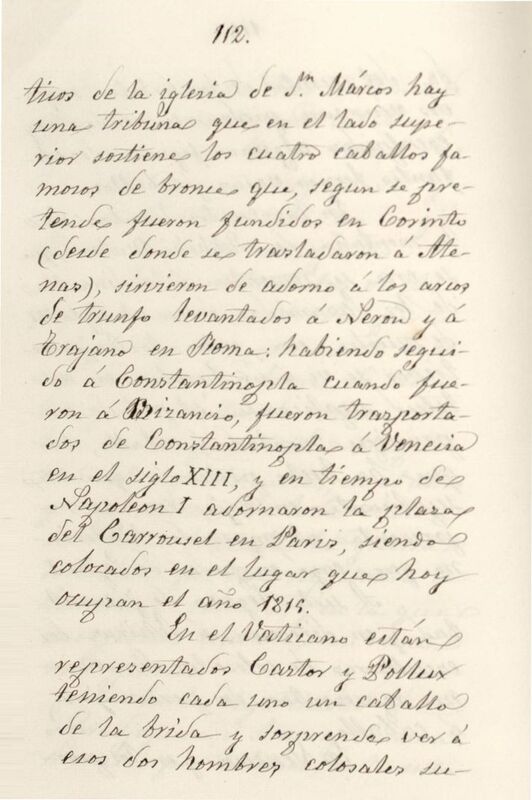 112.
ticos de la iglesia de S.ⁿ Márcos hay
una tribuna que en el lado supe-
rior sostiene los cuatro caballos fa-
mosos de bronce que, segun se pre-
tende fueron fundidos en Corinto
(desde donde se trasladaron á Ate-
nas), sirvieron de adorno á los arcos
de triunfo levantados á Neron y á
Trajano en Roma: habiendo segui-
do á Constantinopla cuando fue-
ron á Bizancio, fueron trasporta-
dos de Constantinopla á Venecia
en el siglo XIII, y en tiempo de
Napoleon I adornaron la plaza
del Carrousel en Paris, siendo
colocados en el lugar que hoy
ocupan el año 1815.
En el Vaticano están
representados Castor y Pollux
teniendo cada uno un caballo
de la brida y sorprende ver á
esos dos hombres colosales su-